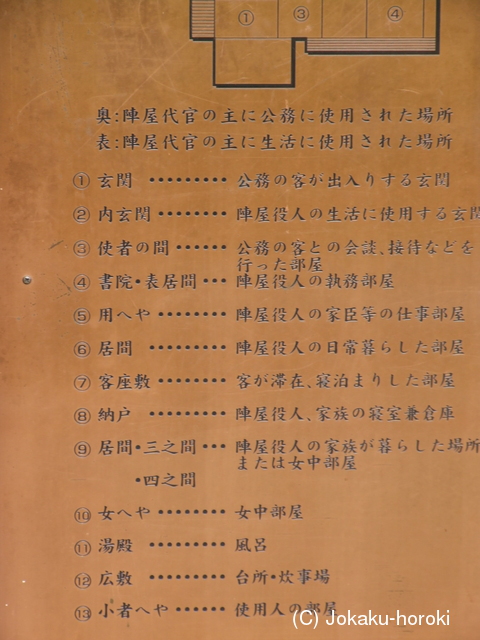 ① ③ ④
奥:陣屋代官の主に公務に使用された場所
表:陣屋代官の主に生活に使用された場所
①玄関 ········· 公務の客が出入りする玄関
②内玄関 ········ 陣屋役人の生活に使用する玄関
③使者の間 ······ 公務の客との会談、接待などを
行った部屋
④書院・表居間 ··· 陣屋役人の執務部屋
⑤用へや ········ 陣屋役人の家臣等の仕事部屋
⑥居間 ········· 陣屋役人の日常暮らした部屋
⑦客座敷 ········ 客が滞在、寝泊まりした部屋
⑧納戸 ········· 陣屋役人、家族の寝室兼倉庫
⑨居間・三之間 ··· 陣屋役人の家族が暮らした場所
または女中部屋
・四之間
⑩女へや ········ 女中部屋
⑪湯殿 ········· 風呂
⑫広敷 ········· 台所・炊事場
⑬小者へや ······ 使用人の部屋
(C) Jokaku-horoki